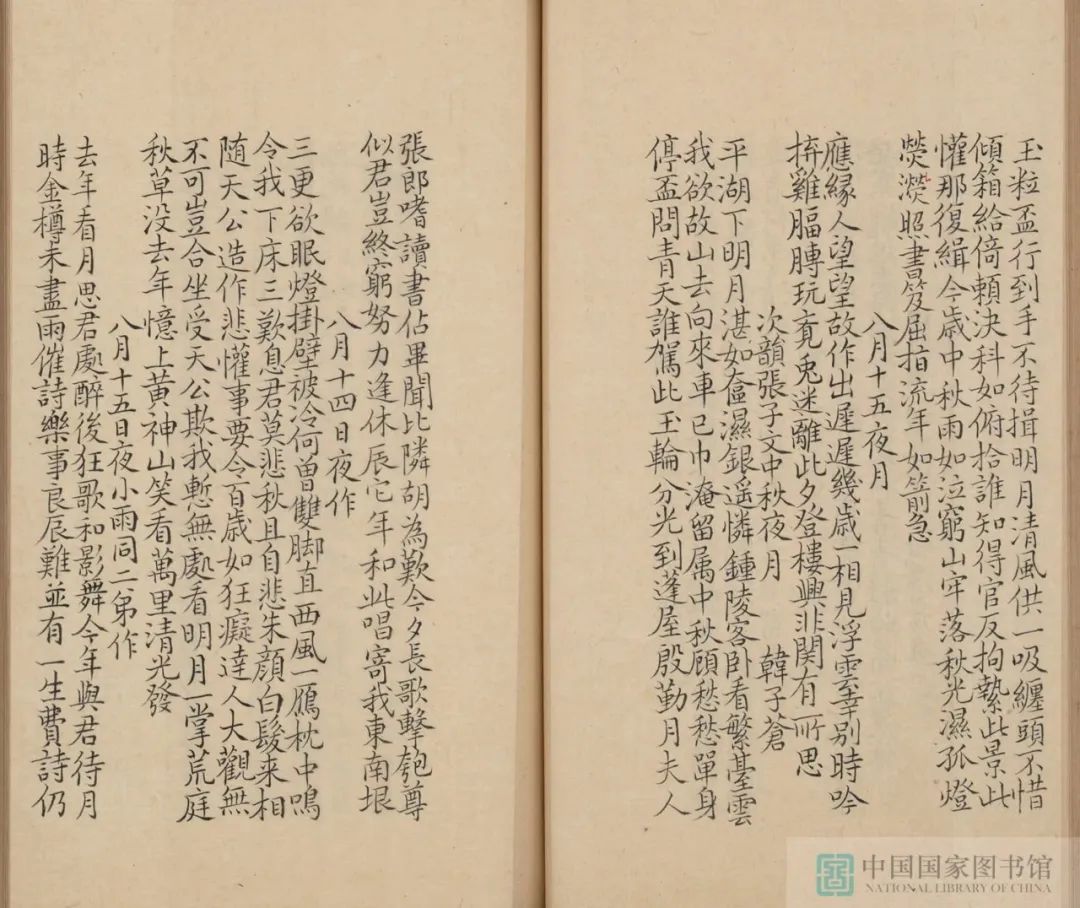 玉粒盃行到手不待揖明月清風供一吸纏頭不惜
傾箱給倚賴決科如俯拾誰知得官反拘縶此景此
懽那復緝今歲中秋雨如泣窮山牢落秋光濕孤燈
熒熒照書笈屈指流年如箭急
八月十五夜月
應緣人望望故作出遲遲幾歲一相見浮雲幸別時吟
挤雞腷膊玩竟兎迷離此夕登樓興非關有所思
次韻張子文中秋夜月 韓子蒼
平湖下明月湛如奩濕銀遥憐鍾陵客卧看繁臺雲
我欲故山去向來車已巾淹留属中秋顧愁愁單身
停盃問青天誰駕此玉輪分光到蓬屋殷勤月夫人
張郎嗜讀書佔畢聞比隣胡為歎今夕長歌擊匏尊
似君豈終窮努力逢休辰它年和此唱寄我東南垠
八月十四日夜作
三更欲眠燈掛壁被冷何曾雙脚直西風一鴈枕中鳴
令我下床三歎息君莫悲秋且自悲朱顔白髮来相
随天公造作悲懽事要令百歲如狂癡達人大觀無
不可豈合坐受天公欺我慙無處看明月一掌荒庭
秋草没去年憶上黄神山笑看萬里清光發
八月十五日夜小雨同二弟作
去年看月思君處醉後狂歌和影舞今年與君待月
時金樽未盡雨催詩樂事良辰難並有一生費詩仍
中国国家图书馆
NATIONAL LIBRARY OF CHINA